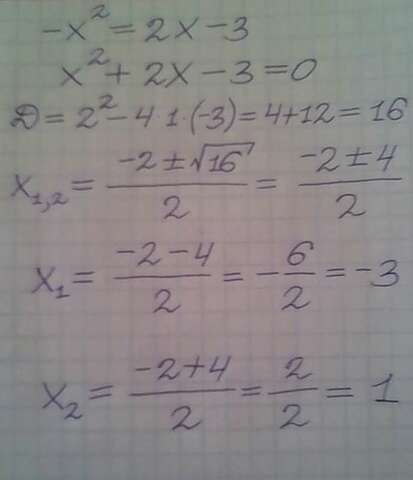 -x² = 2x - 3
x² + 2x - 3 = 0
D = 2² - 4·1·(-3) = 4 + 12 = 16
x₁,₂ = (-2 ± √16)/2 = (-2 ± 4)/2
x₁ = (-2 - 4)/2 = -6/2 = -3
x₂ = (-2 + 4)/2 = 2/2 = 1